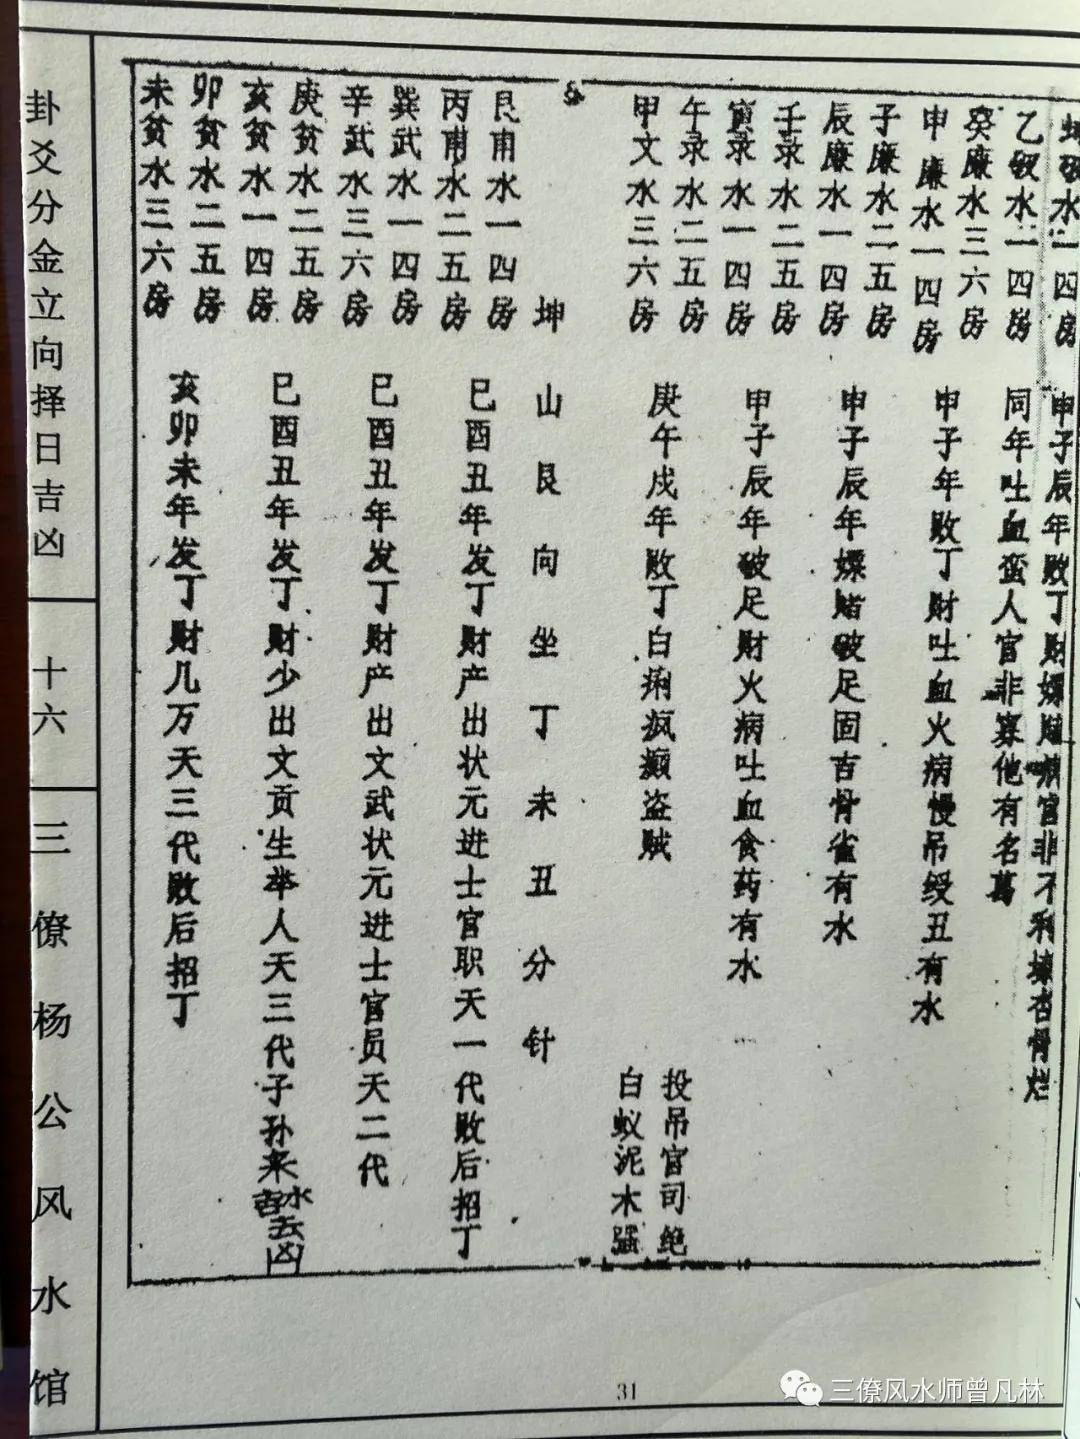 坤破水一四房
乙破水一四房
癸廉水三六房
申廉水一四房
子廉水二五房
辰廉水一四房
壬录水二五房
寅录水一四房
午录水二五房
甲文水三六房
申子辰年败丁财嫖赌病官非不利 杏骨烂
同年吐血蛮人官非寡他有名葛
申子年败丁财吐血火病慢吊绶丑有水
申子辰年嫖赌破足固吉骨雀有水
甲子辰年破足财火病吐血食药有水
庚午戌年败丁白痢疯癫盗贼
投吊官司绝
白蚁泥木强
坤山艮向坐丁未丑分针
艮甫水一四房
丙甫水二五房
巽武水一四房
辛武水三六房
庚贫水二五房
亥贫水一四房
卯贫水二五房
未贫水三六房
巳酉丑年发丁财产出状元进士官职天一代败后招丁
巳酉丑年发丁财产出文武状元进士官员天二代
巳酉丑年发丁财少出文贡生举人天三代子孙来水吉去凶
亥卯未年发丁财几万天三代败后招丁
卦爻分金立向择日吉凶
十六
三僚杨公风水馆
31
三僚风水师曾凡林